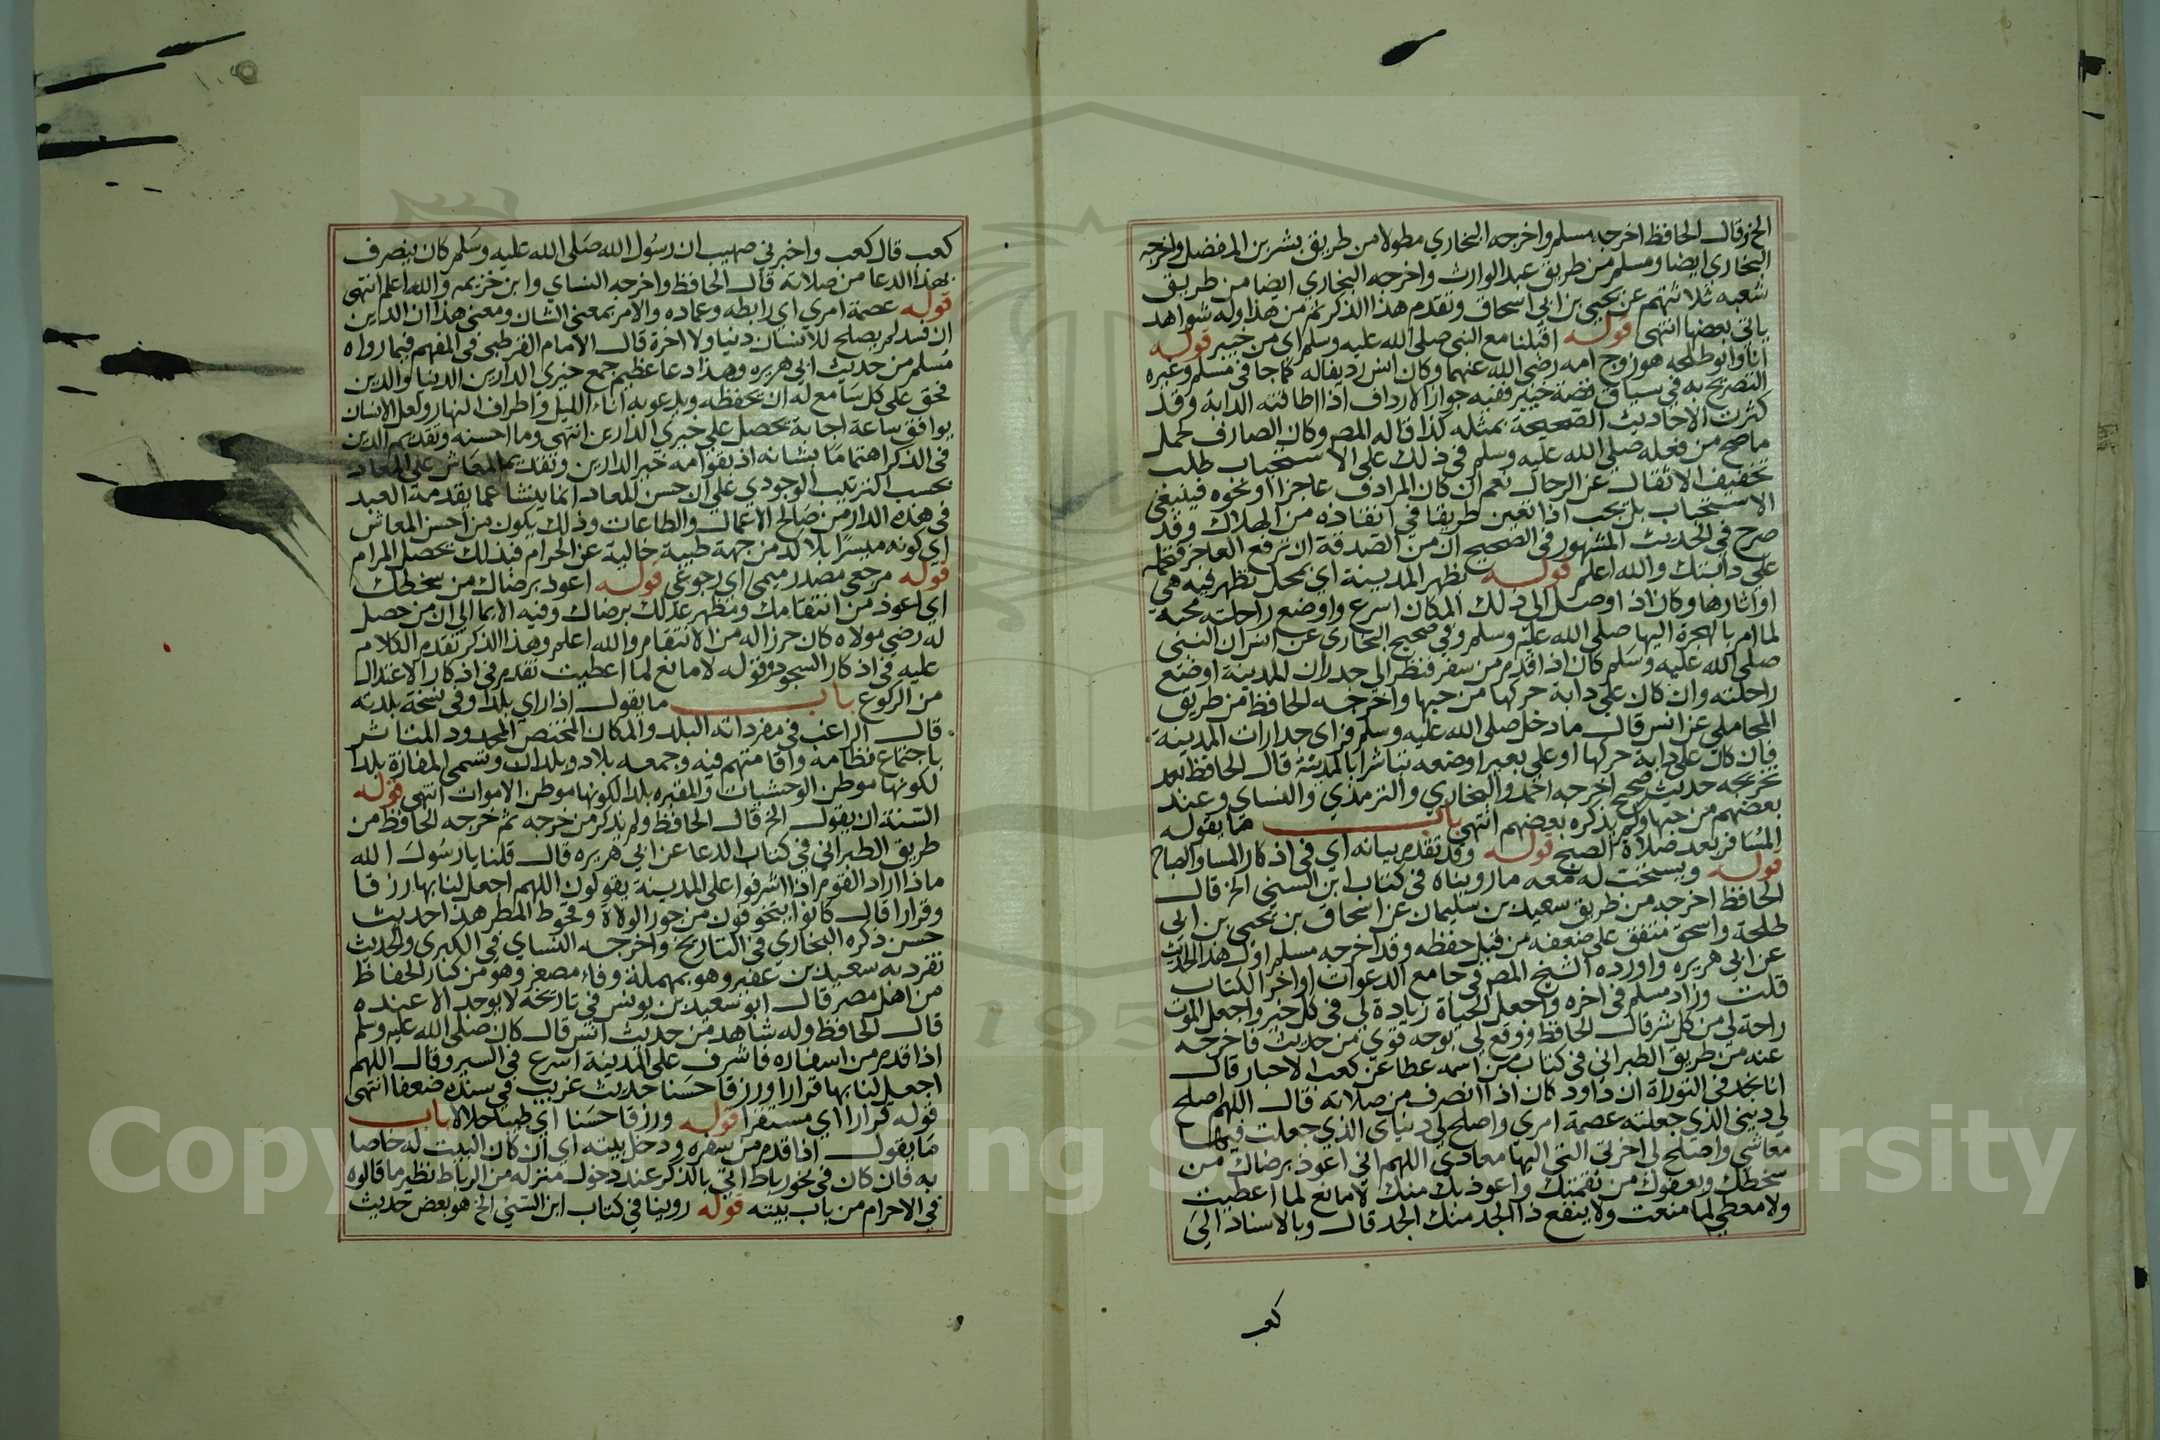 الخ قال الحافظ اخرجه مسلم واخرجه البخاري مطولا من طريق بشر بن المفضل واخرجه
البخاري ايضا ومسلم من طريق عبد الوارث واخرجه البخاري ايضا من طريق
شعبه ثلاثتهم عن يحيى بن ابي اسحاق وتقدم هذا الذكر من هذا وله شواهد
ياتي بعضها انتهى قوله اقبلنا مع النبي صلى الله عليه وسلم اي من خيبر قوله
انا وابو طلحه هو زوج امه رضي الله عنهما وكان انس رديفاله كما جا في مسلم وغيره
التصريح به في سياق قصة خيبر ففيه جواز الارداف اذا اطاقته الدابة وقد
كثرت الاحاديث الصحيحة بمثله كذا قاله المص وكان الصارف لحمل
ما صح من فعله صلى الله عليه وسلم في ذلك على الاستحباب طلب
تخفيف الاثقال عن الرحال نعم ان كان المرادف عاجزا او نحوه فينبغي
الاستحباب بل يجب اذا تعين طريقا في انقاذه من الهلاك وقد
صرح في الحديث المشهور في الصحيح ان من الصدقة ان ترفع العاجز فتحمله
على دابتك والله اعلم قوله بظهر المدينة اي بمحل تظهر فيه هي
او اثارها وكان اذا وصل الى ذلك المكان اسرع واوضع راحلته محبة
لما امر بالهجرة اليها صلى الله عليه وسلم وفي صحيح البخاري عن انس ان النبي
صلى الله عليه وسلم كان اذا قدم من سفر فنظر الى جدران المدينة اوضع
راحلته وان كان على دابة حركها من حبها واخرجه الحافظ من طريق
المحاملي عن انس قال ما دخل صلى الله عليه وسلم فراى جدارات المدينة
فان كان على دابة حركها او على بعير اوضعه تباشرا بالمدينة قال الحافظ بعد
تخريجه حديث صحيح اخرجه احمد والبخاري والترمذي والنساي وعند
بعضهم من حبها ولم يذكره بعضهم انتهى باب ما يقوله
المسافر بعد صلاة الصبح قوله وقد تقدم بيانه اي في اذكار المسا والصباح
قوله ويستحب له معه ما رويناه في كتاب ابن السني الخ قال
الحافظ اخرجه من طريق سعيد بن سليمان عن اسحاق بن يحيى بن ابي
طلحة واسحق متفق على ضعفه من قبل حفظه وقد اخرجه مسلم اول هذا الحديث
عن ابي هريره واورده الشيخ المص في جامع الدعوات اواخر الكتاب
قلت وزاد مسلم في اخره واجعل الحياة زيادة لي في كل خير واجعل الموت
راحة لي من كل شر قال الحافظ ووقع لي بوجه قوي من حديث فاخرجه
عنه من طريق الطبراني في كتاب من اسمه عطا عن كعب الاحبار قال
انا نجد في التوراة ان داود كان اذا انصرف من صلاته قال اللهم اصلح
لي ديني الذي جعلته عصمة امري واصلح لي دنياي الذي جعلت فيها
معاشي واصلح لي اخرتي التي اليها معادي اللهم اني اعوذ برضاك من
سخطك وبعفوك من نقمتك واعوذ بك منك لا مانع لما اعطيت
ولا معطي لما منعت ولا ينفع ذا الجد منك الجد قال وبالاسناد الى
كعب
كعب قال كعب واخبرني صهيب ان رسول الله صلى الله عليه وسلم كان ينصرف
بهذا الدعا من صلاته قال الحافظ واخرجه النساي وابن خزيمه والله اعلم انتهى
قوله عصمة امري اي رابطه وعماده والامر بمعنى الشان ومعنى هذا ان الدين
ان فسد لم يصلح للانسان دنيا ولا اخرة قال الامام القرطبي في المفهم فيما رواه
مسلم من حديث ابي هريره وهذا دعا عظيم جمع خيري الدارين الدنيا والدين
فحق على كل سامع له ان يحفظه ويدعو به اناء الليل واطراف النهار ولعل الانسان
يوافق ساعة اجابة يحصل على خيري الدارين انتهى وما احسنه وتقديم الدين
في الذكر اهتماما بشانه اذ بقوامه خير الدارين وتقديم المعاش على المعاد
بحسب الترتيب الوجودي على ان حسن المعاد انما ينشا عما يقدمة العبد
في هذه الدار من صالح الاعمال والطاعات وذلك يكون من احسن المعاش
اي كونه ميسرا بلا كد من جهة طيبة خالية عن الحرام فبذلك يحصل المرام
قوله مرجعي مصدر ميمي اي رجوعي قوله اعوذ برضاك من سخطك
اي اعوذ من انتقامك ومظهر عدلك برضاك وفيه الايما الى ان من حصل
له رضى مولاه كان حرزا له من الانتقام والله اعلم وهذا الذكر تقدم الكلام
عليه في اذكار السجود وقوله لا مانع لما اعطيت تقدم في اذكار الاعتدال
من الركوع باب ما يقول اذا راي بلدا وفي نسخة بلدته
قال الراغب في مفرداته البلد والمكان المختص المحدود المتاثر
باجتماع نظامه واقامتهم فيه وجمعه بلاد وبلدان وتسمى المفازة بلدا
لكونها موطن الوحشيات والمقبره بلدا لكونها موطن الاموات انتهى قوله
السنة ان يقول الخ قال الحافظ ولم يذكر من خرجه ثم خرجه الحافظ من
طريق الطبراني في كتاب الدعا عن ابي هريره قال قلنا يا رسول الله
ماذا اراد القوم اذا اشرفوا على المدينة يقولون اللهم اجعل لنا بها رزقا
وقرارا قال كانوا يتخوفون من جور الولاة وقحوط المطر هذا حديث
حسن ذكره البخاري في التاريخ واخرجه النساي في الكبرى والحديث
تفرد به سعيد بن عفير وهو بمهملة وفاء مصغر وهو من كبار الحفاظ
من اهل مصر قال ابو سعيد بن يونس في تاريخه لا يوجد الا عنده
قال الحافظ وله شاهد من حديث انس قال كان صلى الله عليه وسلم
اذا قدم من اسفاره فاشرف على المدينة اسرع في السير وقال اللهم
اجعل لنا بها قرارا ورزقا حسنا حديث غريب في سنده ضعفا انتهى
قوله قرارا اي مستقرا قوله ورزقا حسنا اي طيبا حلالا باب
ما يقول اذا قدم من سفره ودخل بيته اي ان كان البيت له خاصا
به فان كان في نحو رباط اتى بالذكر عند دخول منزله من الرباط نظير ما قالوه
في الاحرام من باب بيته قوله روينا في كتاب ابن السني الخ هو بعض حديث
Copy King S ersity
195